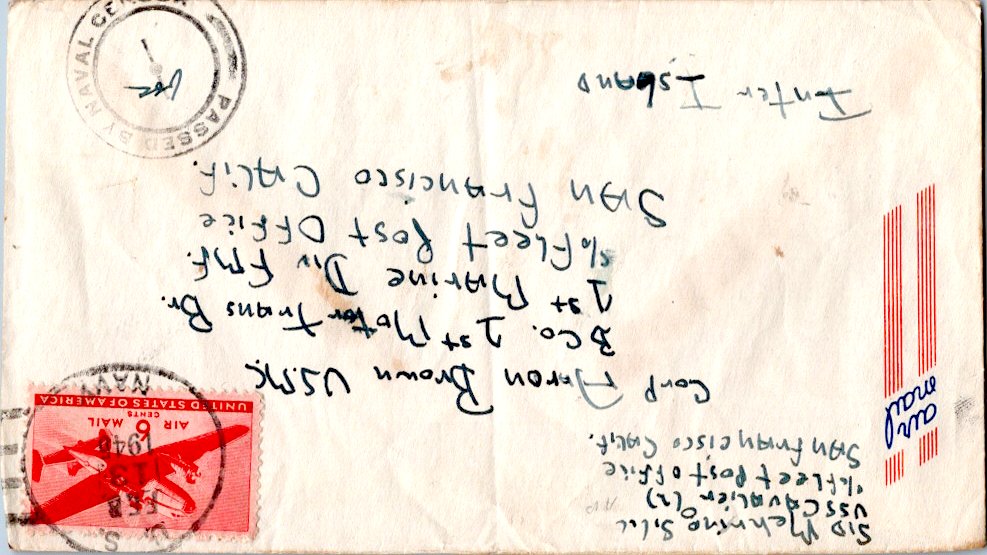 USS Cavalier (2)
c/o Fleet Post Office
San Francisco Calif.
air
mail
Corp Aaron Brown USMC.
B Co. 1st Motor Trans Bn.
1st Marine Div FMF.
c/o Fleet Post Office
San Francisco Calif.
Inter Island
UNITED STATES OF AMERICA
AIR 6 MAIL
CENTS
U. S.
NAVY
FEB
13
PASSED BY NAVAL CENSOR